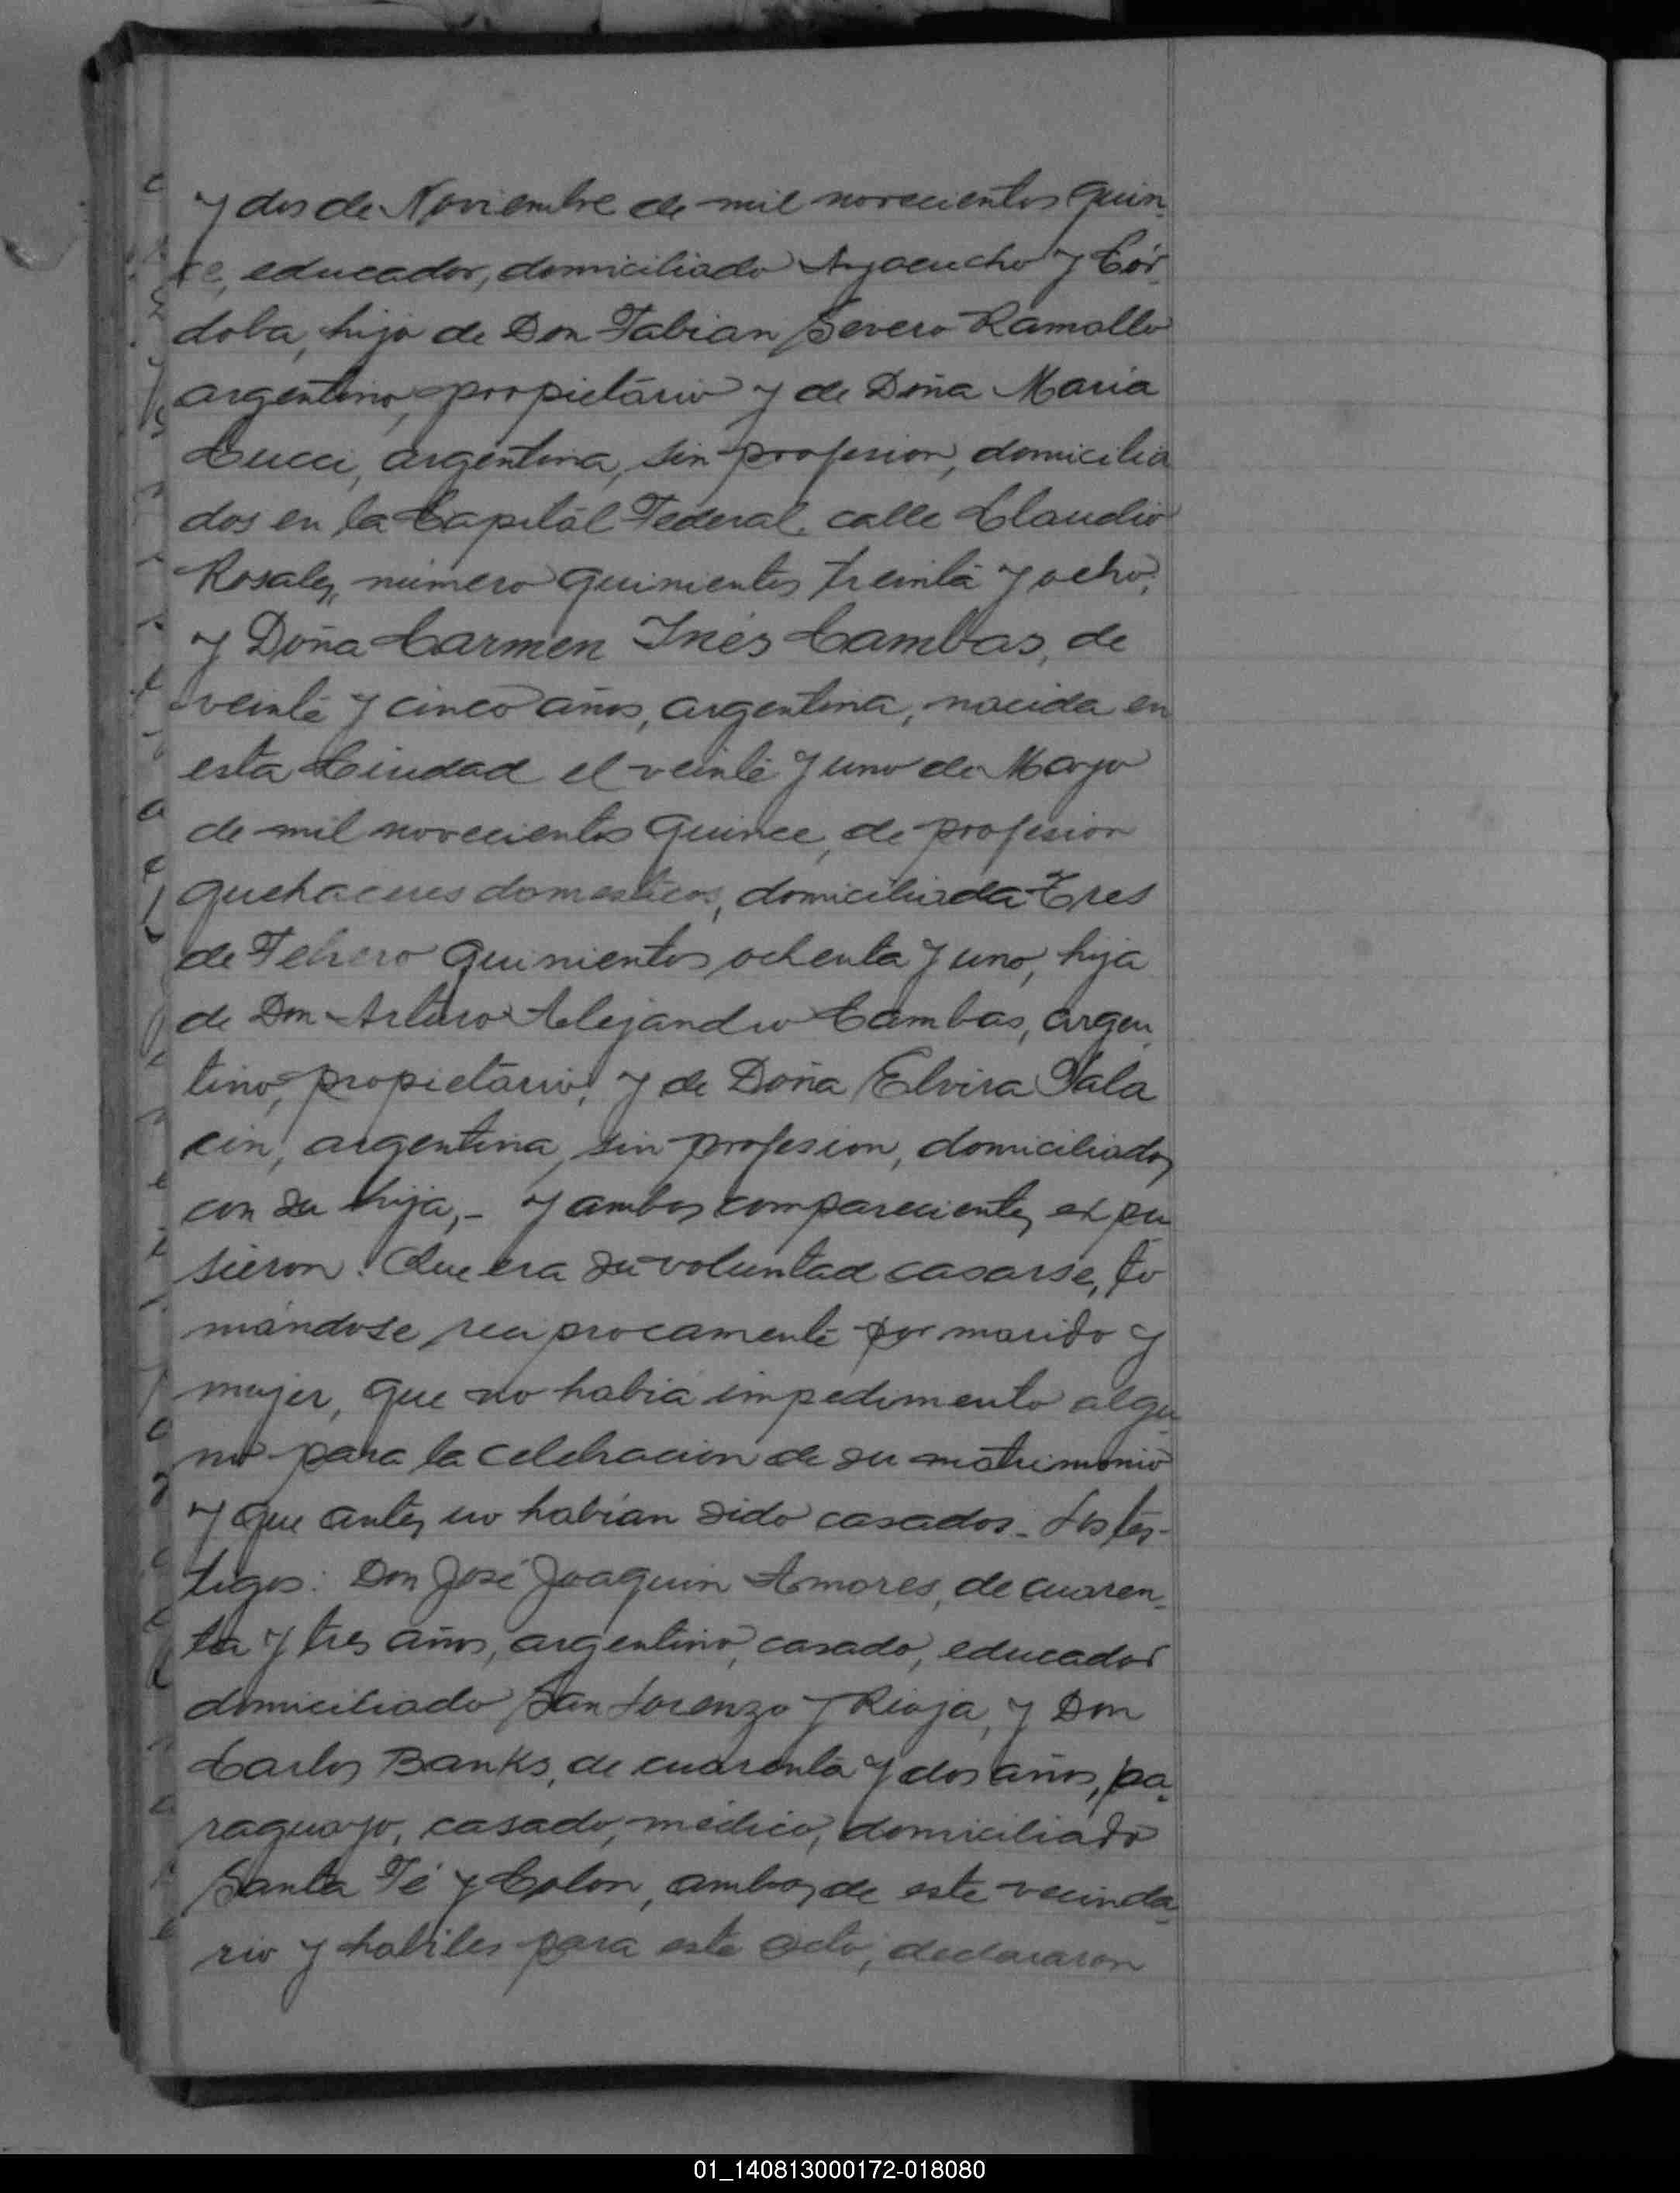 y dos de Noviembre de mil novecientos quin-
ce, educador, domiciliado Ayacucho y Cór-
doba, hijo de Don Fabian Severo Ramallo
argentino, propietário y de Doña Maria
Cucci, argentina, sin profesion, domicilia
dos en la Capitál Federal, calle Claudio
Rosales, número quinientos treinta y ocho,
y Doña Carmen Inés Cambas, de
veinte y cinco años, argentina, nacida en
esta Ciudad el veinte y uno de Mayo
de mil novecientos quince, de profesion
quehaceres domesticos, domiciliada Tres
de Febrero quinientos ochenta y uno, hija
de Don Arturo Alejandro Cambas, argen-
tino, propietário, y de Doña Elvira Pala
cin, argentina, sin profesion, domiciliados
con su hija,- y ambos comparecientes expu
sieron: Que era su voluntad casarse, to
mándose reciprocamente por marido y
mujer, que no habia impedimento algu
no para la celebracion de su matrimonio
y que antes no habian sido casados.- Los tes-
tigos: Don José Joaquin Amores, de cuaren-
ta y tres años, argentino, casado, educador
domiciliado San Lorenzo y Rioja, y Don
Carlos Banks, de cuarenta y dos años, pa-
raguayo, casado, médico, domiciliado
Santa Fé y Colon, ambos de este vecinda-
rio y habiles para este acto, declararon
01_140813000172-018080